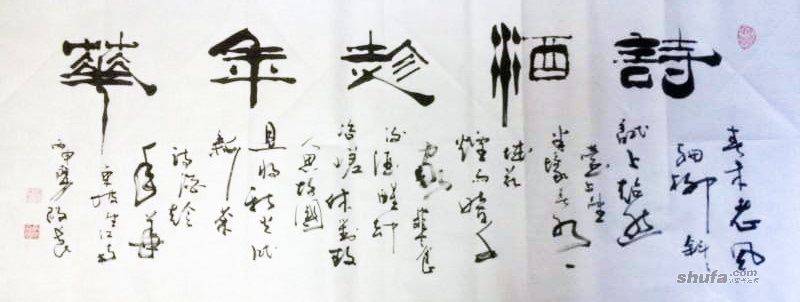 詩酒趁年華
春未老風
細柳斜々
試上超然
臺上望
半壕春水一
城花
煙雨暗千
家寒食
後酒醒却
咨嗟休對故
人思故國
且將新火試
新茶
詩酒趁
年華
東坡望江南
丙申夏
shufa.com